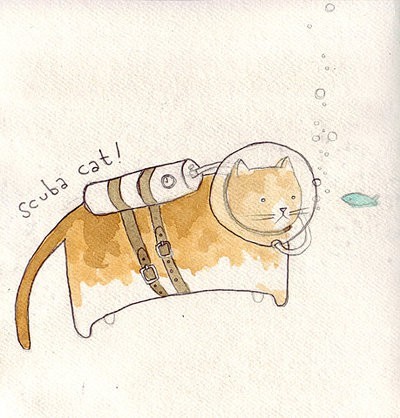 scuba cat!